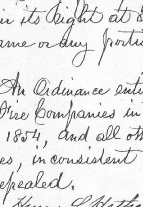 in its right at
same or any porti
An Ordinance enti
Fire Companies in
1854, and all oth
es, in consistent
epealed.